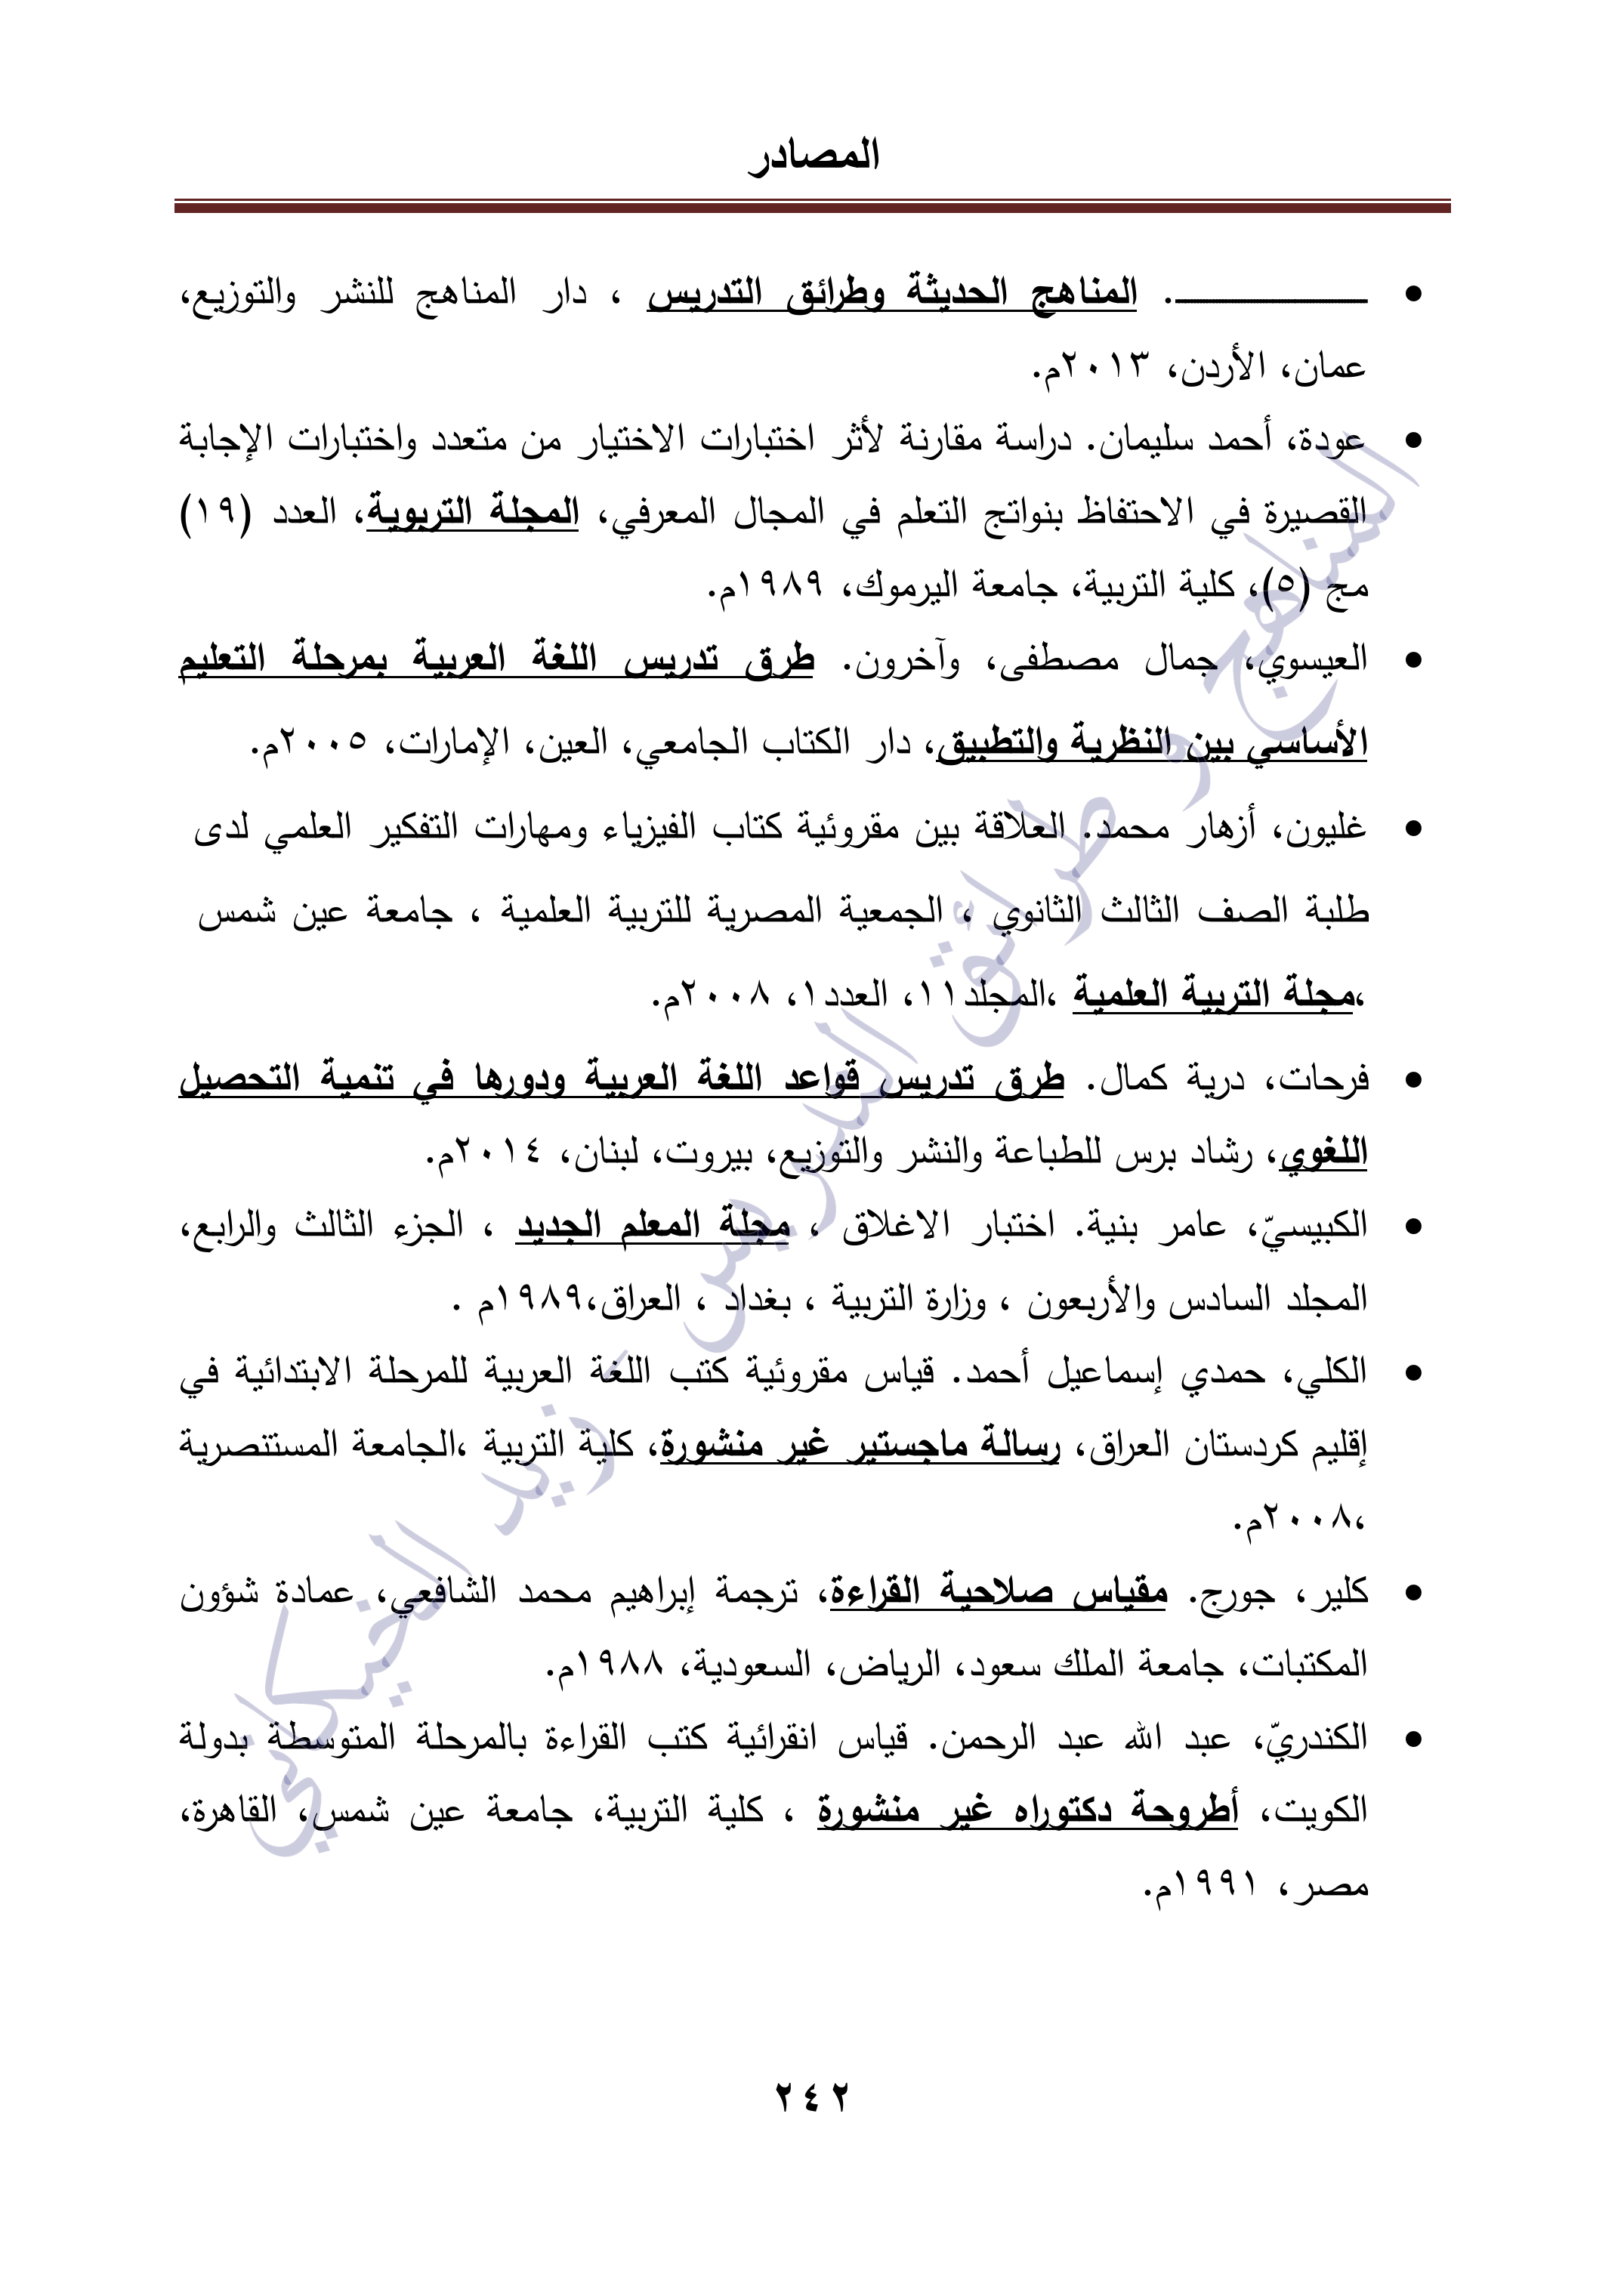 المصادر
• ــــــــــــــــــــ. المناهج الحديثة وطرائق التدريس ، دار المناهج للنشر والتوزيع،
عمان، الأردن، ٢٠١٣م.
• عودة، أحمد سليمان. دراسة مقارنة لأثر اختبارات الاختيار من متعدد واختبارات الإجابة
القصيرة في الاحتفاظ بنواتج التعلم في المجال المعرفي، المجلة التربوية، العدد (١٩)
مج (٥)، كلية التربية، جامعة اليرموك، ١٩٨٩م.
• العيسوي، جمال مصطفى، وآخرون. طرق تدريس اللغة العربية بمرحلة التعليم
الأساسي بين النظرية والتطبيق، دار الكتاب الجامعي، العين، الإمارات، ٢٠٠٥م.
• غليون، أزهار محمد. العلاقة بين مقروئية كتاب الفيزياء ومهارات التفكير العلمي لدى
طلبة الصف الثالث الثانوي ، الجمعية المصرية للتربية العلمية ، جامعة عين شمس
،مجلة التربية العلمية ،المجلد١١، العدد١، ٢٠٠٨م.
• فرحات، درية كمال. طرق تدريس قواعد اللغة العربية ودورها في تنمية التحصيل
اللغوي، رشاد برس للطباعة والنشر والتوزيع، بيروت، لبنان، ٢٠١٤م.
• الكبيسيّ، عامر بنية. اختبار الاغلاق ، مجلة المعلم الجديد ، الجزء الثالث والرابع،
المجلد السادس والأربعون ، وزارة التربية ، بغداد ، العراق،١٩٨٩م .
• الكلي، حمدي إسماعيل أحمد. قياس مقروئية كتب اللغة العربية للمرحلة الابتدائية في
إقليم كردستان العراق، رسالة ماجستير غير منشورة، كلية التربية ،الجامعة المستنصرية
،٢٠٠٨م.
• كلير، جورج. مقياس صلاحية القراءة، ترجمة إبراهيم محمد الشافعي، عمادة شؤون
المكتبات، جامعة الملك سعود، الرياض، السعودية، ١٩٨٨م.
• الكندريّ، عبد الله عبد الرحمن. قياس انقرائية كتب القراءة بالمرحلة المتوسطة بدولة
الكويت، أطروحة دكتوراه غير منشورة ، كلية التربية، جامعة عين شمس، القاهرة،
مصر، ١٩٩١م.
المناهج و طرائق التدريس - زيد الخيكاني
٢٤٢